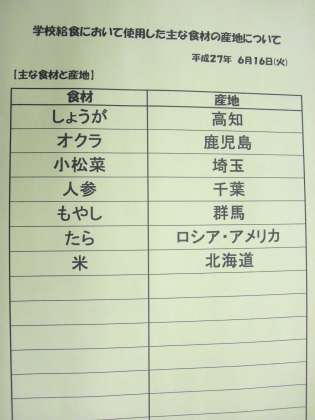 学校給食において使用した主な食材の産地について
平成27年 6月16日(火)
【主な食材と産地】
食材 産地
しょうが 高知
オクラ 鹿児島
小松菜 埼玉
人参 千葉
もやし 群馬
たら ロシア・アメリカ
米 北海道